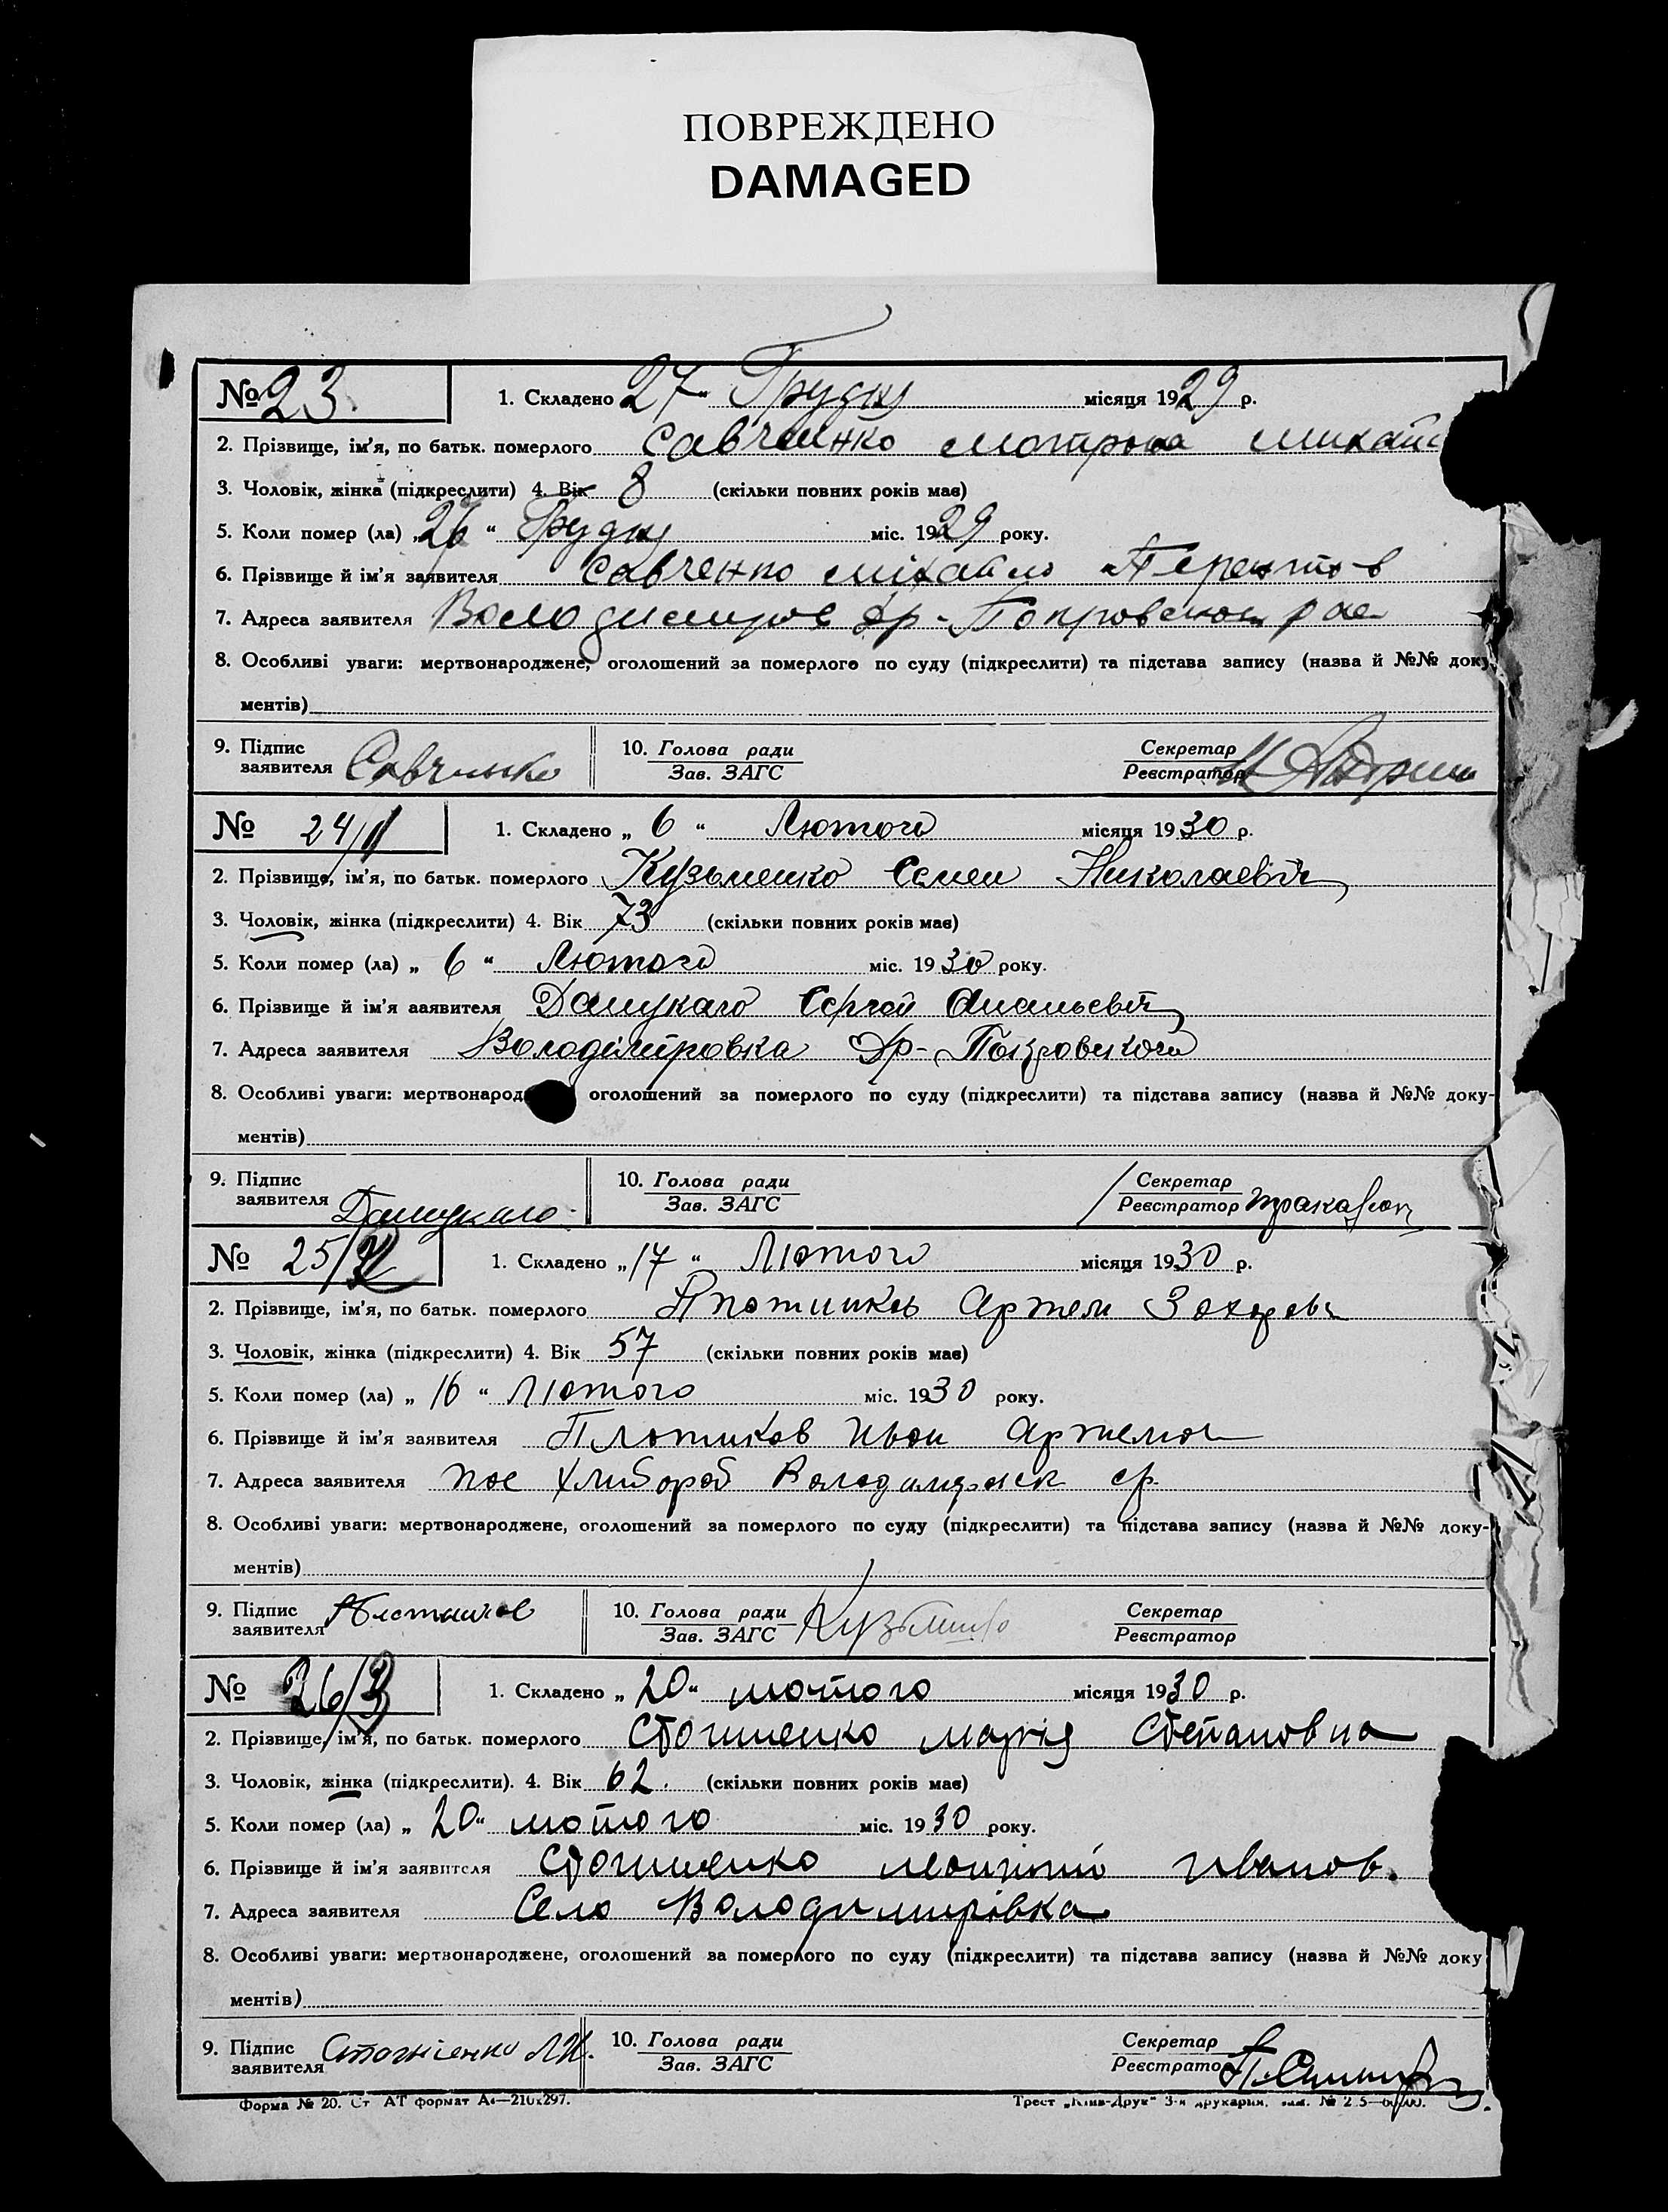 ПОВРЕЖДЕНО
DAMAGED
№ 23. 1. Складено 27 " Грудня місяця 1929 р.
2. Прізвище, ім'я, по батьк. померлого Савченко Мотрона
3. Чоловік, жінка (підкреслити) 4. Вік 8 (скільки повних років має)
5. Коли помер (ла) „26 " Грудня міс. 1929 року.
6. Прізвище й ім'я заявителя Савченко Міхайло
7. Адреса заявителя
8. Особливі уваги: мертвонароджене, оголошений за померлого по суду (підкреслити) та підстава запису (назва й №№ доку
ментів)
9. Підпис заявителя Савченко 10. Голова ради Зав. ЗАГС Секретар Реєстратор
№ 24/1 1. Складено „ 6 " Лютого місяця 1930 р.
2. Прізвище, ім'я, по батьк. померлого Кузьменко Семен Николаевіч
3. Чоловік, жінка (підкреслити) 4. Вік 73 (скільки повних років має)
5. Коли помер (ла) „ 6 " Лютого міс. 1930 року.
6. Прізвище й ім'я заявителя Сергей Ананьевіч
7. Адреса заявителя Володімировка Др-Покровского
8. Особливі уваги: мертвонарод оголошений за померлого по суду (підкреслити) та підстава запису (назва й №№ доку-
ментів)
9. Підпис заявителя 10. Голова ради Зав. ЗАГС Секретар Реєстратор
№ 25/2 1. Складено „17 " Лютого місяця 1930 р.
2. Прізвище, ім'я, по батьк. померлого Артем
3. Чоловік, жінка (підкреслити) 4. Вік 57 (скільки повних років має)
5. Коли помер (ла) „ 16 " Лютого міс. 1930 року.
6. Прізвище й ім'я заявителя Плотиков Иван
7. Адреса заявителя пос Хлибороб ср.
8. Особливі уваги: мертвонароджене, оголошений за померлого по суду (підкреслити) та підстава запису (назва й №№ доку-
ментів)
9. Підпис заявителя 10. Голова ради Зав. ЗАГС Секретар Реєстратор
№ 26/3 1. Складено „ 20 " лютого місяця 1930 р.
2. Прізвище, ім'я, по батьк. померлого Стогниенко Марія Степановна
3. Чоловік, жінка (підкреслити). 4. Вік 62. (скільки повних років має)
5. Коли помер (ла) „ 20 " лютого міс. 1930 року.
6. Прізвище й ім'я заявителя Стогниенко Иванов.
7. Адреса заявителя Село Володимирівка
8. Особливі уваги: мертвонароджене, оголошений за померлого по суду (підкреслити) та підстава запису (назва й №№ доку
ментів)
9. Підпис заявителя Стогніенко 10. Голова ради Зав. ЗАГС Секретар Реєстрато
Форма № 20. Ст АТ формат А4—210x297. Трест „Київ-Друк" 3-я друкарня.